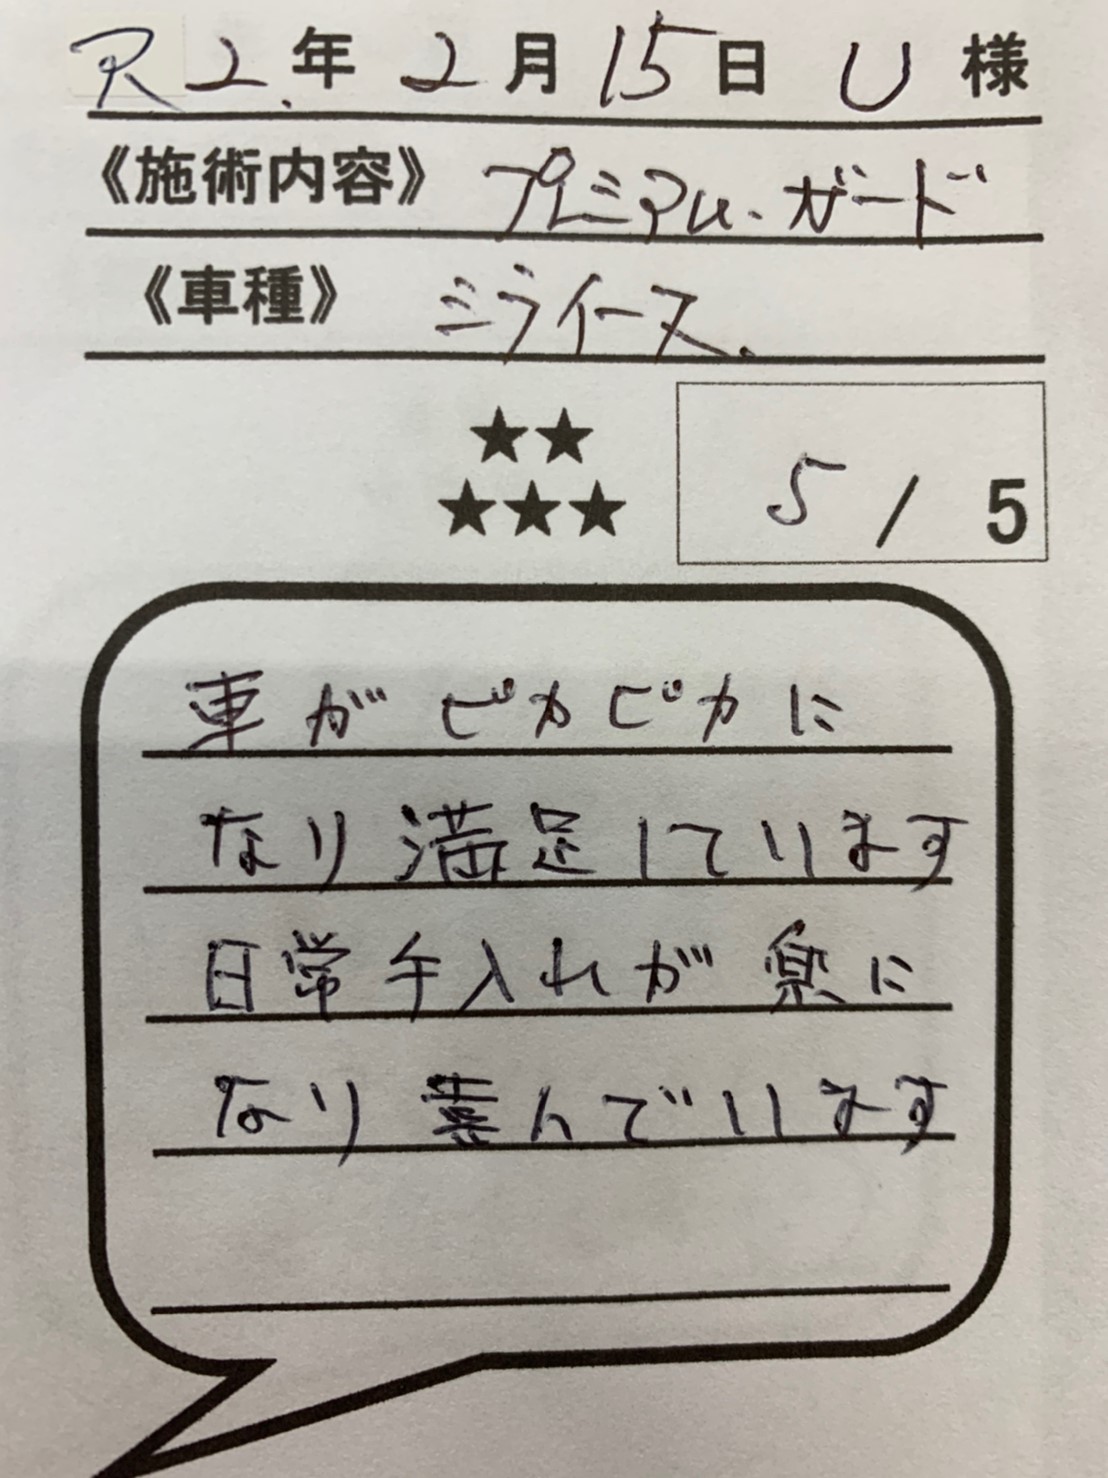 R2.年 2月 15日 U 様
《施術内容》 プレミアム・ガード
《車種》 ミライース.
★★
★★★ 5 / 5
車がピカピカに
なり満足しています
日常手入れが楽に
なり喜んでいます